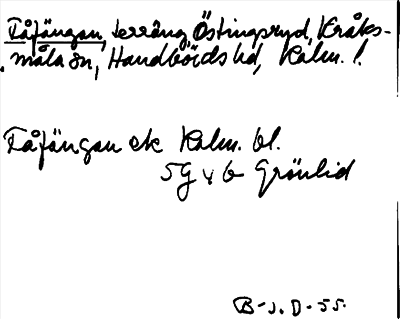 Fåfängan, terräng, Östingsryd, Kråks-
måla sn, Handbörds hd, Kalm. l.
Fåfängan ek Kalm. bl.
5G v b Grönlid
B-s. D-55.